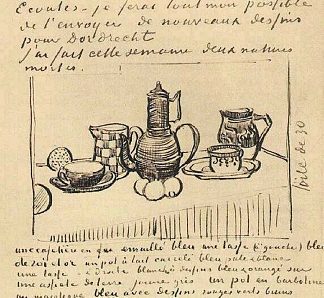 Ecoutes - je ferai tout mon possible
de t'envoyer de nouveaux dessins
pour Dordrecht
J'ai fait cette semaine deux natures
mortes.
toile de 30
une cafetière en fer emaillé bleu une tasse (à gauche) bleu
de roi et or un pot à lait carrelé bleu pale & blanc
une tasse à droite blanche dessins bleu & orangé sur
une assiette de terre jaune gris un pot en barbotine
ou majolique bleu avec dessins rouges verts bruns